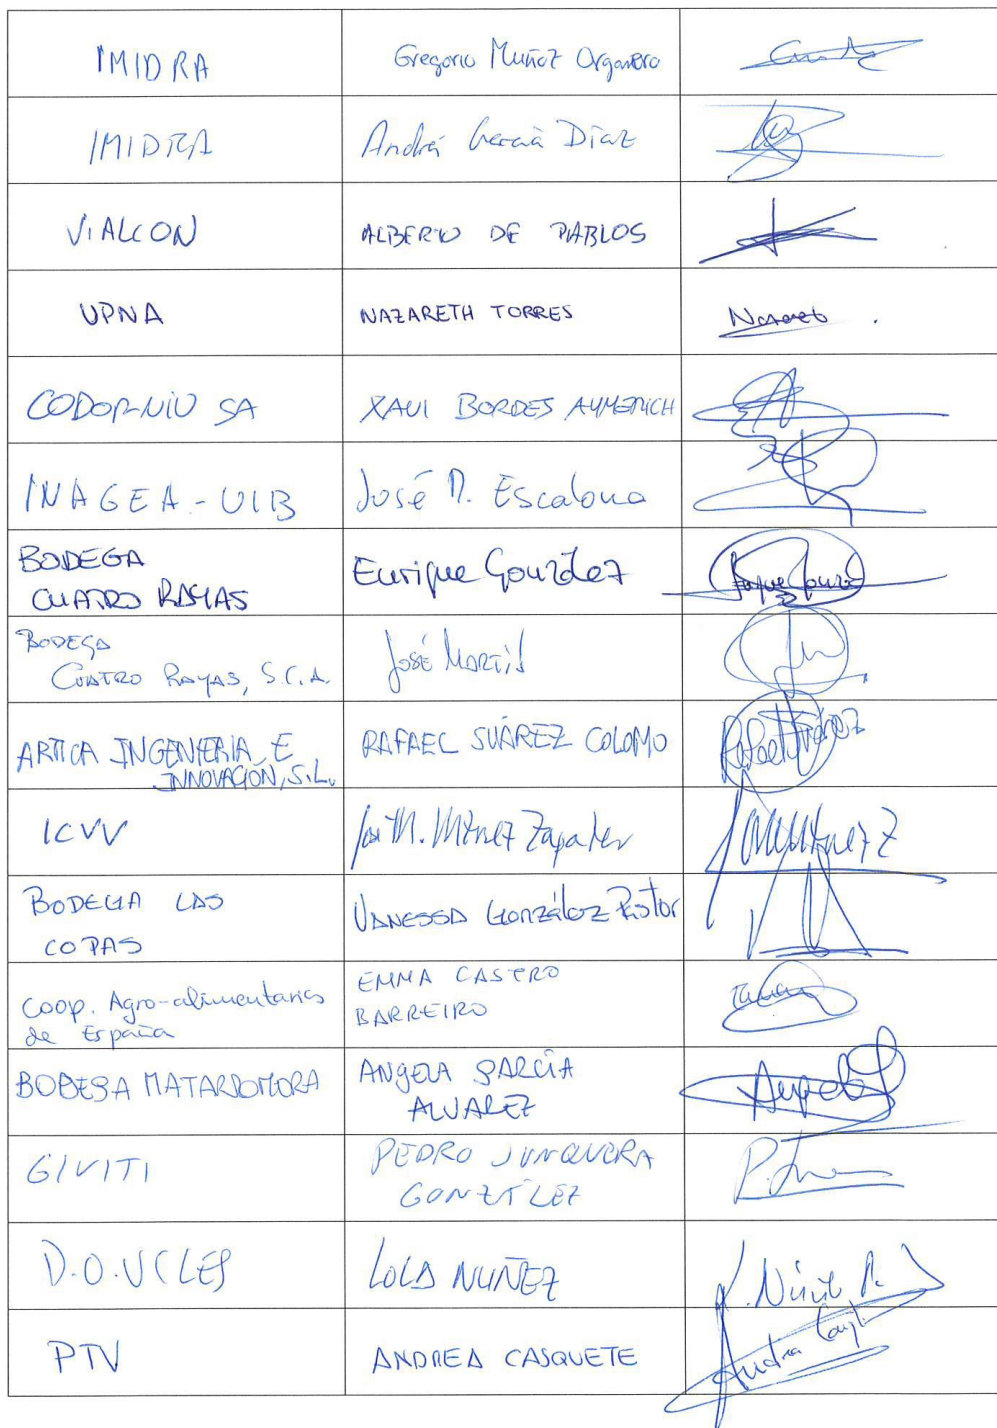 IMIDRA Gregorio Muñoz Organero
IMIDRA Andrés García Díaz
VIALCON ALBERTO DE PABLOS
UPNA NAZARETH TORRES
CODORNIU SA XAVI BORDES AYMERICH
INAGEA-UIB José M. Escalona
BODEGA
CUATRO RAYAS Enrique González Enrique Gonzá
BODEGA
CUATRO RAYAS, S.C.A. José Martín
ARTICA INGENIERIA E
INNOVACIÓN, S.L. RAFAEL SUÁREZ COLOMO Rafael Suárez
ICVV José M. Mtnez Zapater JMMtnez Z
BODEGA LAS
COPAS VANESSA González Pastor
Coop. Agro-alimentarias
de España EMMA CASTRO
BARREIRO
BODEGA MATARROMERA ANGELA GARCÍA
ALVAREZ Angela
GIVITI PEDRO JUNQUERA
GONZÁLEZ P. Jun
D.O. UCLES LOLA NUÑEZ
PTV ANDREA CASQUETE Andrea